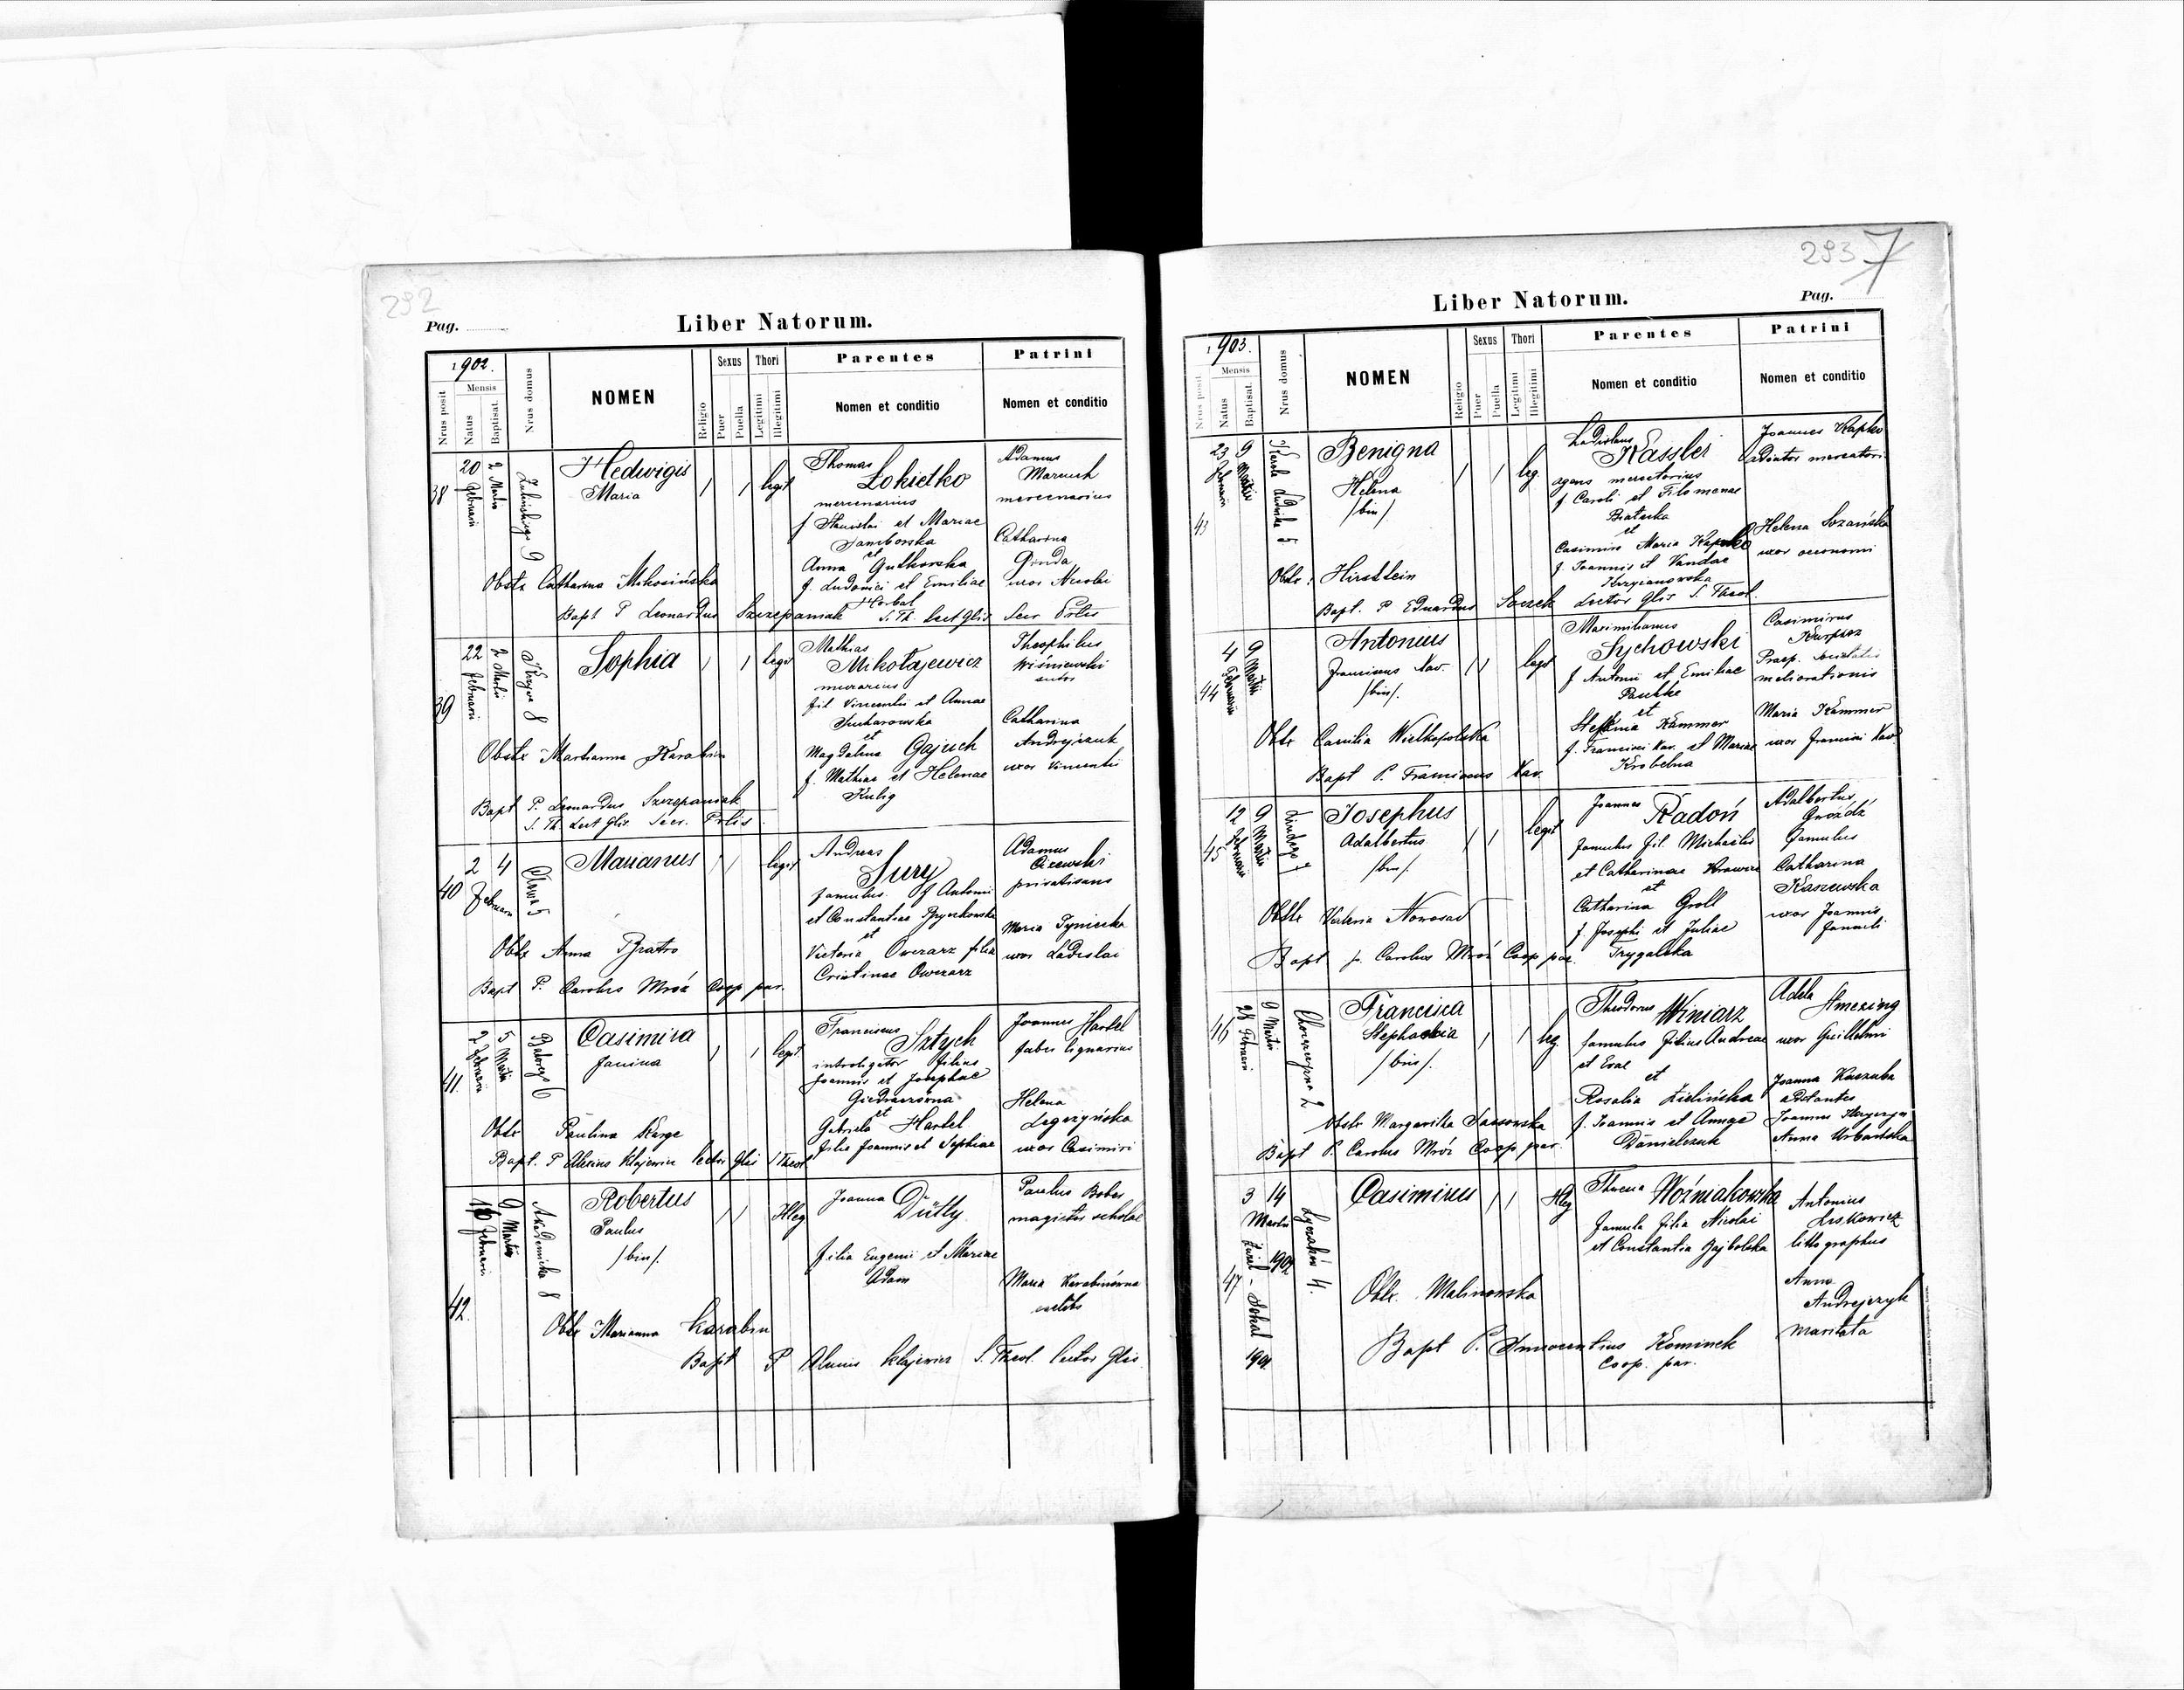 292
Pag.
Liber Natorum.
1902.
Mensis
Nrus posit
Natus
Baptisat.
Nrus domus
NOMEN
Religio
Sexus
Puer
Puella
Thori
Legitimi
Illegitimi
Parentes
Nomen et conditio
Patrini
Nomen et conditio
38
20 Februarii
2 Martii
9
Hedwigis
Maria
legit
Thomas
Lokietko
mercenarius
f Stanislai et Mariae
Jamborska
et
Anna Gutkowska
f. Ludovici et Emiliae
Horbal
Adamus
Maruch
mercenarius
Catharina
uxor Nicolai
Obstx Catharina Mikosińska
Bapt P Leonardus Szczepaniak S. Th. Lect Glis Secr Prlis
39
22 Februarii
2 Martii
8
Sophia
legit
Mathias
Mikołajewicz
murarius
fil Vincentii et Annae
Sucharowska
et
Magdalena Gajuch
f. Mathiae et Helenae
Kulig
Theophilus
Wiśniewski
sutor
Catharina
Andrejczuk
uxor Vincentii
Obstx Marianna Karabin
Bapt P. Leonardus Szczepaniak
S. Th. Lect Glis. Secr. Prlis
40
2
4
Februarii
5
Marianus
legit
Andreas
Sury
famulus f Antonii
et Constantiae
et
Victoria Owczarz filia
Cristinae Owczarz
Adamus
privatisans
Maria Tyniecka
uxor Ladislai
Obstx Anna Bratro
Bapt P. Carolus Mróz Coop par.
41.
2 Februarii
5 Martii
Batorego 6
Casimira
Janina
legit.
Franciscus
Sztych
introligator filius
Joannis et Josephae
et
Gabriela Hartel
filia Joannis et Sophiae
Joannes Hartel
faber lignarius
Helena
Legezyńska
uxor Casimiri
Obstx Paulina Karge
Bapt. P Alexius Klajewicz Lector Glis S Theol
42.
16 Februarii
9 Martii
Akademicka 8
Robertus
Paulus
/bin/.
Illeg
Joanna Dütly
filia Eugenii et Mariae
Adam
Paulus Bober
magister scholae
Maria Karabinówna
caelebs
Obstx Marianna Karabin
Bapt P Alexius Klajewicz S. Theol. Lector Glis.
293
7
Liber Natorum.
Pag.
1903.
Mensis
Nrus posit
Natus
Baptisat.
Nrus domus
NOMEN
Religio
Sexus
Puer
Puella
Thori
Legitimi
Illegitimi
Parentes
Nomen et conditio
Patrini
Nomen et conditio
43
23 Februarii
9 Martii
Karola Ludwika 5
Benigna
Helena
/bin/
leg.
Ladislaus
Kassler
agens mercatorius
f Caroli et Filomenae
Białecka
et
Casimira Maria Kapko
f. Joannis et Vandae
Krzyżanowska
Joannes Kapko
Helena Lozańska
uxor oeconomi
Obstx: Hirstlein
Bapt. P Eduardus Soczek Lector Glis S. Theol.
44
4
9
Februarii
Martii
Antonius
Franciscus Xav.
/bin/.
legit
Maximilianus
Sychowski
f Antonii et Emiliae
Pautke
et
Stefania Kammer
f. Francisci Xav. et Mariae
Krobelna
Casimirus
Praep. societatis
meliorationis
Maria Kammer
uxor Francisci Xav.
Obstx Camilia Wielkopolska
Bapt P. Franciscus Xav.
45
12 Februarii
9 Martii
Lindego 7
Josephus
Adalbertus
/bin/.
legit
Joannes Radoń
famulus fil. Michaelis
et Catharinae Krawiec
et
Catharina Groll
f. Josephi et Juliae
Trygalska
Adalbertus
Gwóźdź
famulus
Catharina
Kaszewska
uxor Joannis
famuli
Obstx Valeria Nowosad
Bapt P. Carolus Mróz Coop par.
46
28 Februarii
9 Martii
Chorążczyzna 2
Francisca
Stephania
/bin/.
leg
Theodorus Winiarz
famulus filius Andreae
et Evae
et
Rosalia Zielińska
f. Joannis et Annae
Danielczuk
Adela
uxor Guilelmi
Joanna Kaszuba
adstantes
Anna Urbańska
Obstx Margaritha Sassowska
Bapt P. Carolus Mróz Coop par.
47
3 14
Martii
1902
Sokal
1901
Łyczaków 4.
Casimirus
Illeg
Theresia Woźniakowska
famula filia Nicolai
et Constantia
Antonius
Liskowicz
lithographus
Anna
Andrejczyk
maritata
Obstx. Malinowska
Bapt P. Innocentius Kominek
Coop. par.